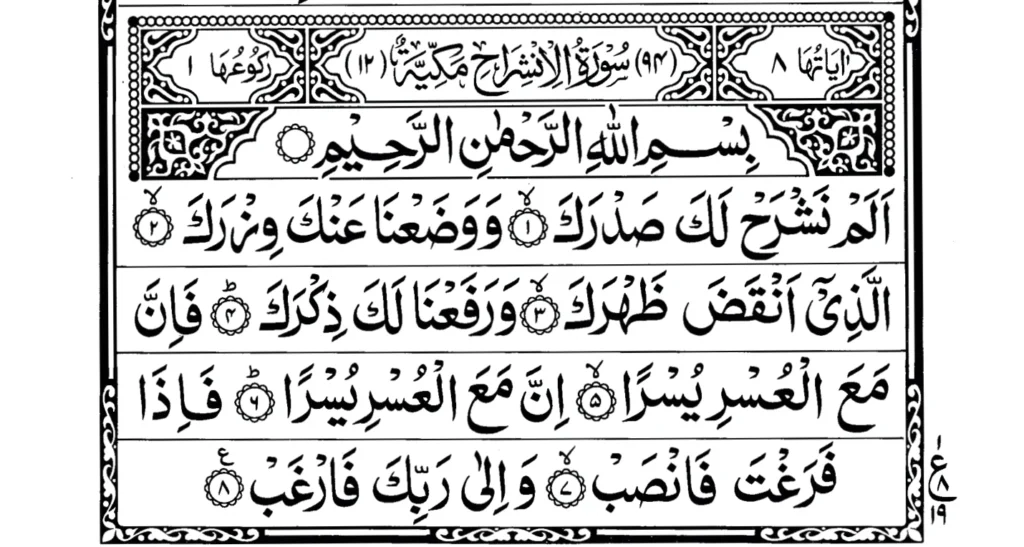 اٰيَاتُهَا ٨ (٩٤) سُوْرَةُ الْاِنْشِرَاحِ مَكِّيَّةٌ (١٢) رُكُوْعُهَا ١
بِسْمِ اللّٰهِ الرَّحْمٰنِ الرَّحِيْمِ
اَلَمْ نَشْرَحْ لَكَ صَدْرَكَ ۙ‏ ١ وَوَضَعْنَا عَنْكَ وِزْرَكَ ۙ‏ ٢
الَّذِىْٓ اَنْقَضَ ظَهْرَكَ ۙ‏ ٣ وَرَفَعْنَا لَكَ ذِكْرَكَ ؕ‏ ٤ فَاِنَّ
مَعَ الْعُسْرِ يُسْرًا ۙ‏ ٥ اِنَّ مَعَ الْعُسْرِ يُسْرًا ؕ‏ ٦ فَاِذَا
فَرَغْتَ فَانْصَبْ ۙ‏ ٧ وَاِلٰى رَبِّكَ فَارْغَبْ ٨ ع
١
ع
٨
١٩